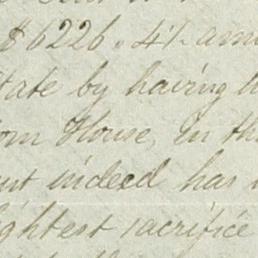 $6226.41 am
tate by having h
om House, in th
ut indeed has
ghtest sacrifice